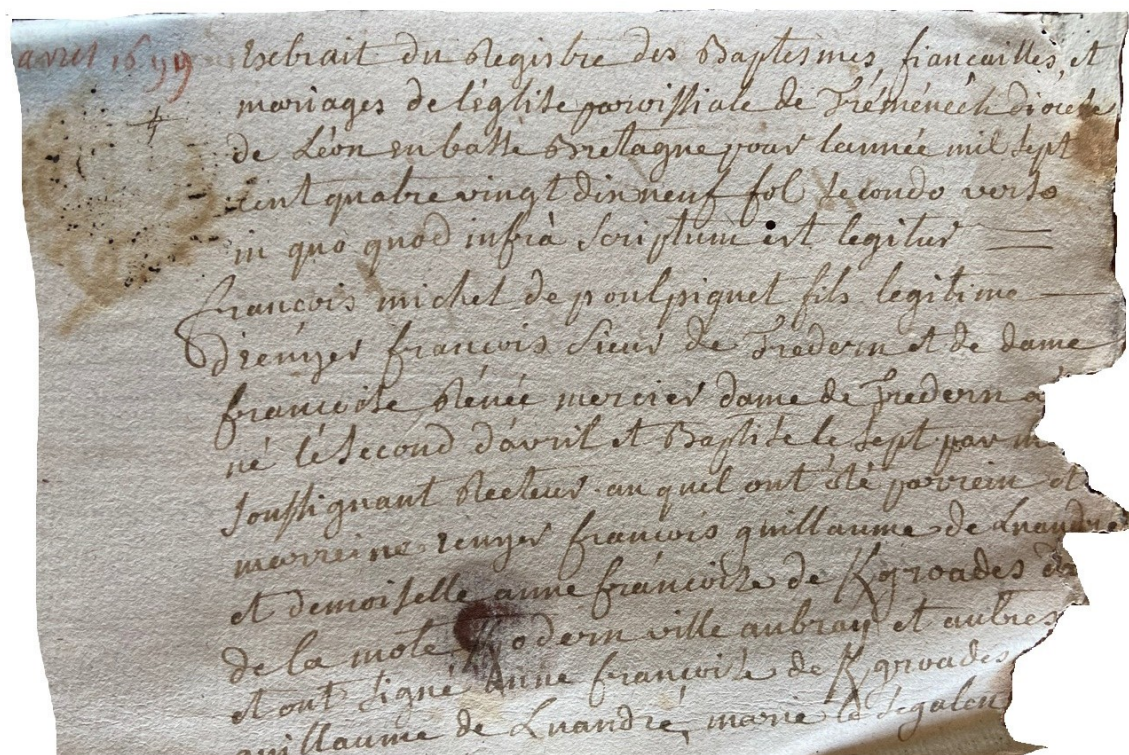 avril 1699
Extrait du Registre des Baptesmes, fiançailles, et
mariages de l'église parroissiale de Tréménéch diocese
de Léon en basse Bretagne pour l'année mil sept
cent quatre vingt dix neuf fol secondo verso
in quo quod infrà scriptum est legitur
françois michel de poulpiquet fils legitime
d'ecuyer françois sieur de Tredern et de dame
françoise Rénée mercier dame de Tredern a
né le second d'avril et Baptisé le sept par
soussignant Recteur au quel ont été parrein et
marreine ecuyer françois guillaume de Lnandré
et demoiselle anne françoise de Kgroades
de la mote Kodern ville aubray et autres
et ont signé anne françoise de Kgroades
guillaume de Lnandré, marie le segalen